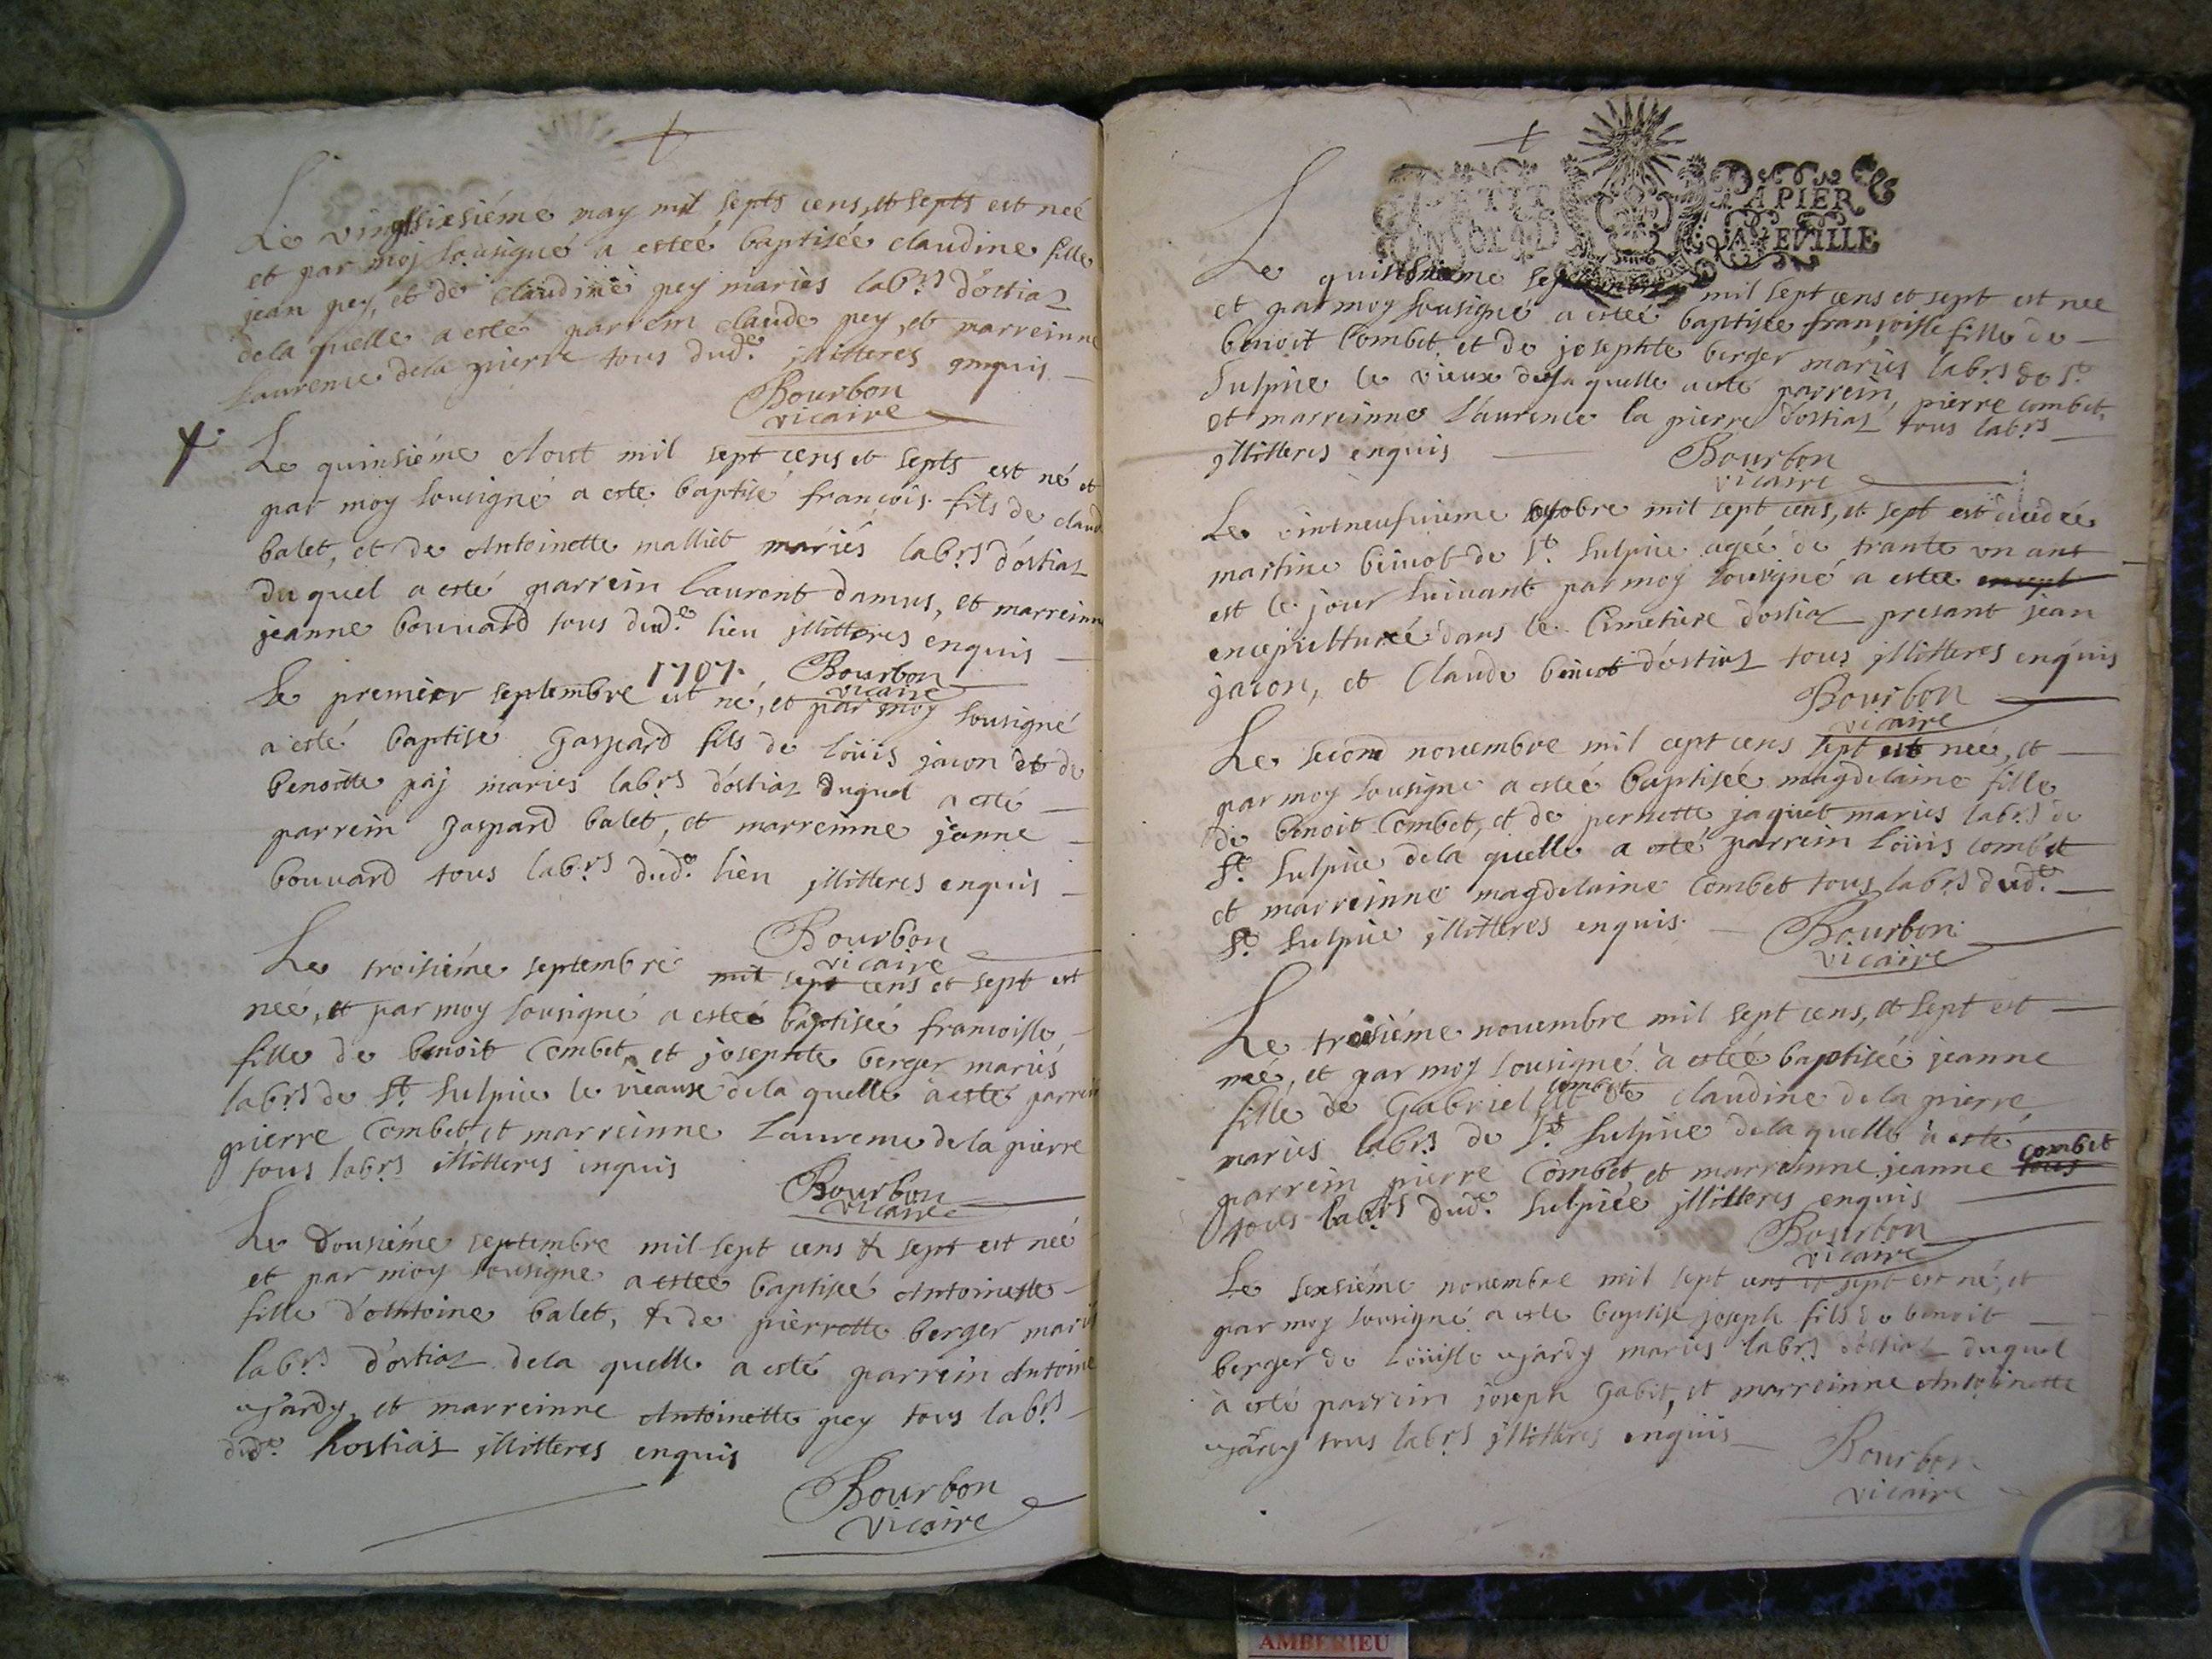 Le vingtsixsiéme may mil septs cens, et septs est neé
et par moj sousigné a esteé baptisée claudine fille
jean pey, et de claudine pey mariés labrs d'ostiaz
dela quelle a esté parrein claude pey, et marreinne
Laurence dela pierre tous dude. jllitteres enquis
Bourbon
vicaire
Le quinsiéme Aoust mil sept cens et septs est né et
par moy sousigné a este baptisé françois fils de claude
balet, et de Antoinette malliet mariés labrs d'ostiaz
du quel a esté parrein Laurent damus, et marreinne
jeanne bouvard tous dude. lieu jllitteres enquis
1707. Bourbon
vicaire
Le premier septembre est né, et par moy sousigné
a esté baptisé Gaspard fils de Loüis jacon et de
benoitte paj mariés labrs d'ostiaz duquel a esté
parrein gaspard balet, et marreinne jeanne
bouvard tous labrs dude. lieu jllitteres enquis
Bourbon
vicaire
Le troisiéme septembre mil sept cens et sept est
neé, et par moy sousigné a esteé baptiseé francoisse
fille de benoit Combet, et josephte berger mariés
labrs de St. Sulpice le vieaux dela quelle a esté parrein
pierre Combet, et marreinne Laurence dela pierre
tous labrs illitteres inquis
Bourbon
vicaire
Le dousiéme septembre mil sept cens & sept est neé
et par moy sousigné a esteé baptiseé Antoinette
fille d'Antoine balet, & de pierrette berger mariés
labrs d'ostiaz dela quelle a esté parrein Antoine
ujardy, et marreinne Antoinette pey tous labrs
dude. hostiaz jllitteres enquis
Bourbon
vicaire
PETIT PAPIER
A FEVILLE
Le quinsieme septembre mil sept cens et sept est neé
et par moy sousigné a esteé baptisée françoisse fille de
benoit Combet, et de josephte berger mariés labrs de St.
Sulpice le vieux dela quelle a esté parrein, pierre combet,
et marreinne Laurence la pierre d'ostiaz tous labrs
jllitteres enquis
Bourbon
vicaire
Le vintneufvieme octobre mil sept cens, et sept est decedeé
martine beivot de St. Sulpice ageé de trante un ans
est le jour suivant par moy sousigné a esteé
ensepulthureé dans le Cimetiere d'ostiaz presant jean
jacon, et Claude beivot d'ostiaz tous jllitteres enquis
Bourbon
vicaire
Le second novembre mil cept cens sept est neé, et
par moy sousigné a esteé baptiseé magdelaine fille
de benoit Combet, et de pernette jaquet mariés labrs de
St. Sulpice dela quelle a esté parrein Loüis Combet
et marreinne magdelaine Combet tous labrs dude.
St. Sulpice jllitteres enquis.
Bourbon
vicaire
Le troisiéme novembre mil sept cens, et sept est
neé, et par moy sousigné a esteé baptiseé jeanne
fille de Gabriel combet et de claudine dela pierre
mariés labrs de St. Sulpice dela quelle a esté
parrein pierre Combet et marreinne jeanne combet
tous labrs dude. Sulpice jllitteres enquis
Bourbon
vicaire
Le sexsiéme novembre mil sept cens et sept est né, et
par moy sousigné a este baptise joseph fils de benoit
berger de Loüisse ujardy mariés labrs d'ostiaz duquel
a esté parrein joseph Gabet, et marreinne Antoinette
ujardy tous labrs jllitteres enquis
Bourbon
vicaire
AMBERIEU